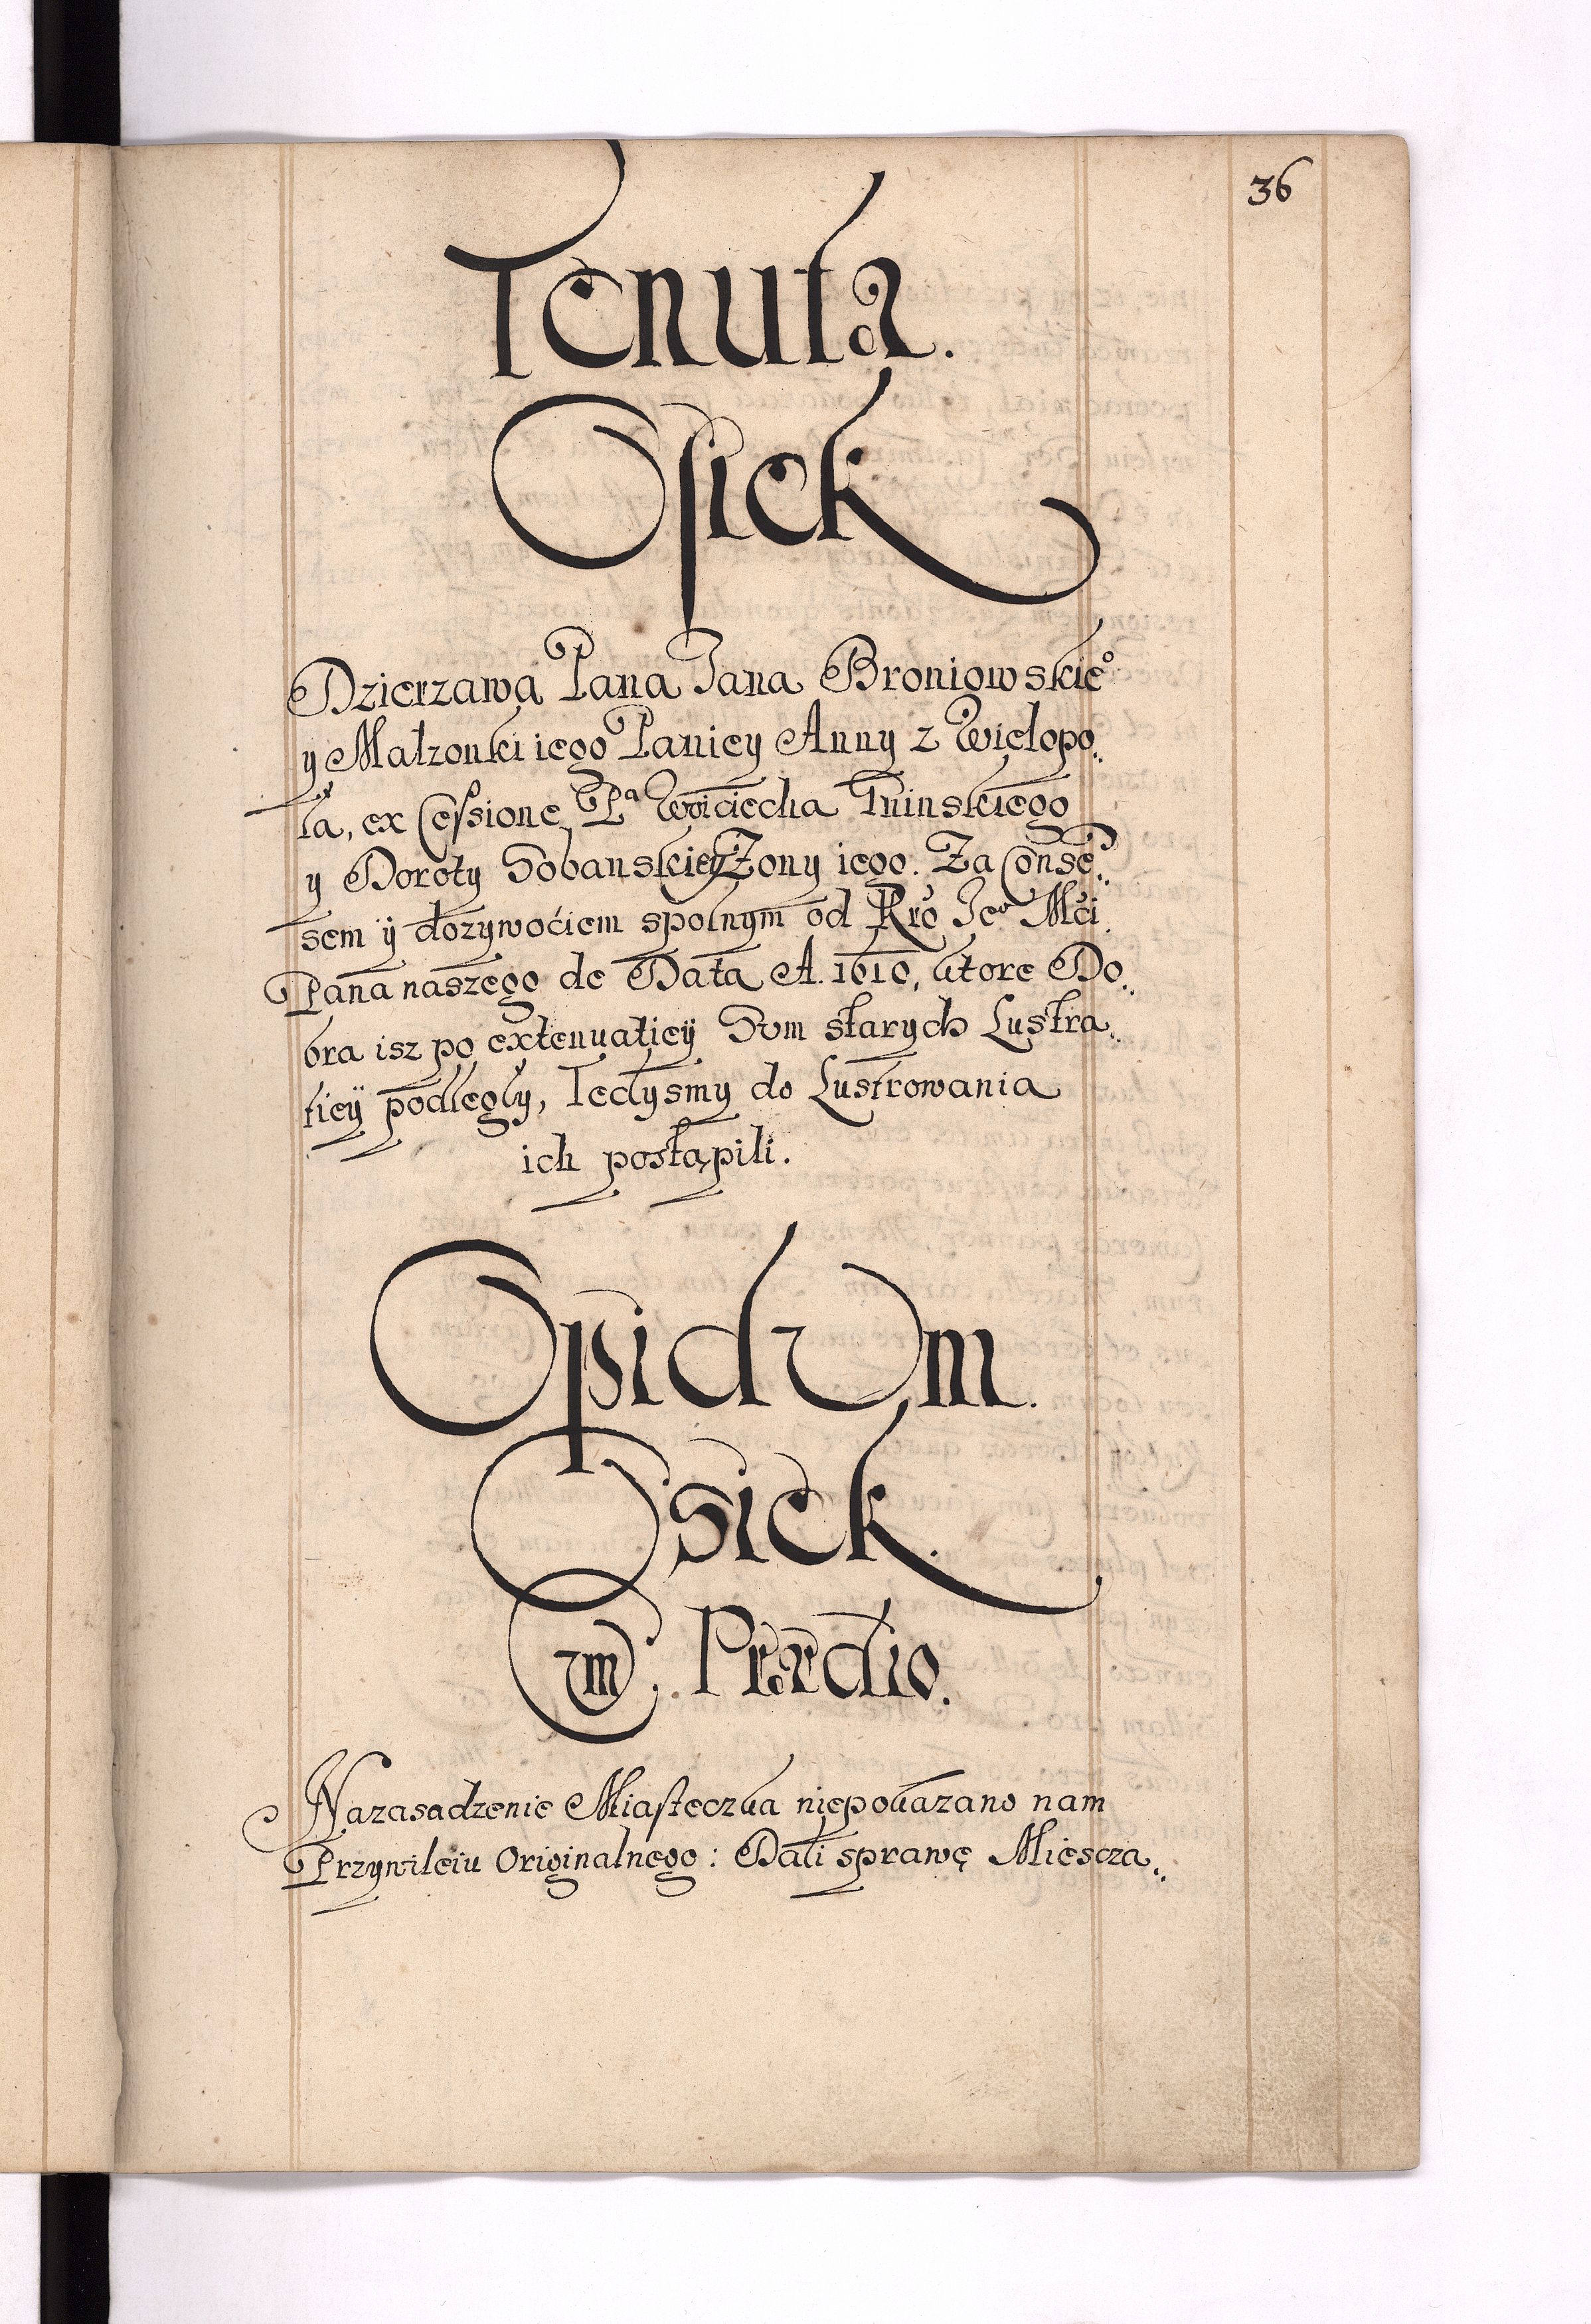 36
Tenuta.
Osiek
Dzierzawa Pana Jana Broniowskie°
y Małzonki iego Paniey Anny z Wielopo„
la, ex Cessione Pª Woiciecha Tninskiego
y Doroty Sobanskiey Zony iego. Za Conse„
sem ÿ dozywoćiem spolnym od Kro Jeo Mći
Pana naszego de Data A. 1610, ktore Do„
bra isz po extenuatieÿ Sum starych Lustra„
tieÿ podległy, Tedysmy do Lustrowania
ich postąpili.
Opidum.
Osiek.
Cum Prædio.
Nazasadzenie Miasteczka niepokazano nam
Przywileiu Originalnego: Dali sprawę Miescza„